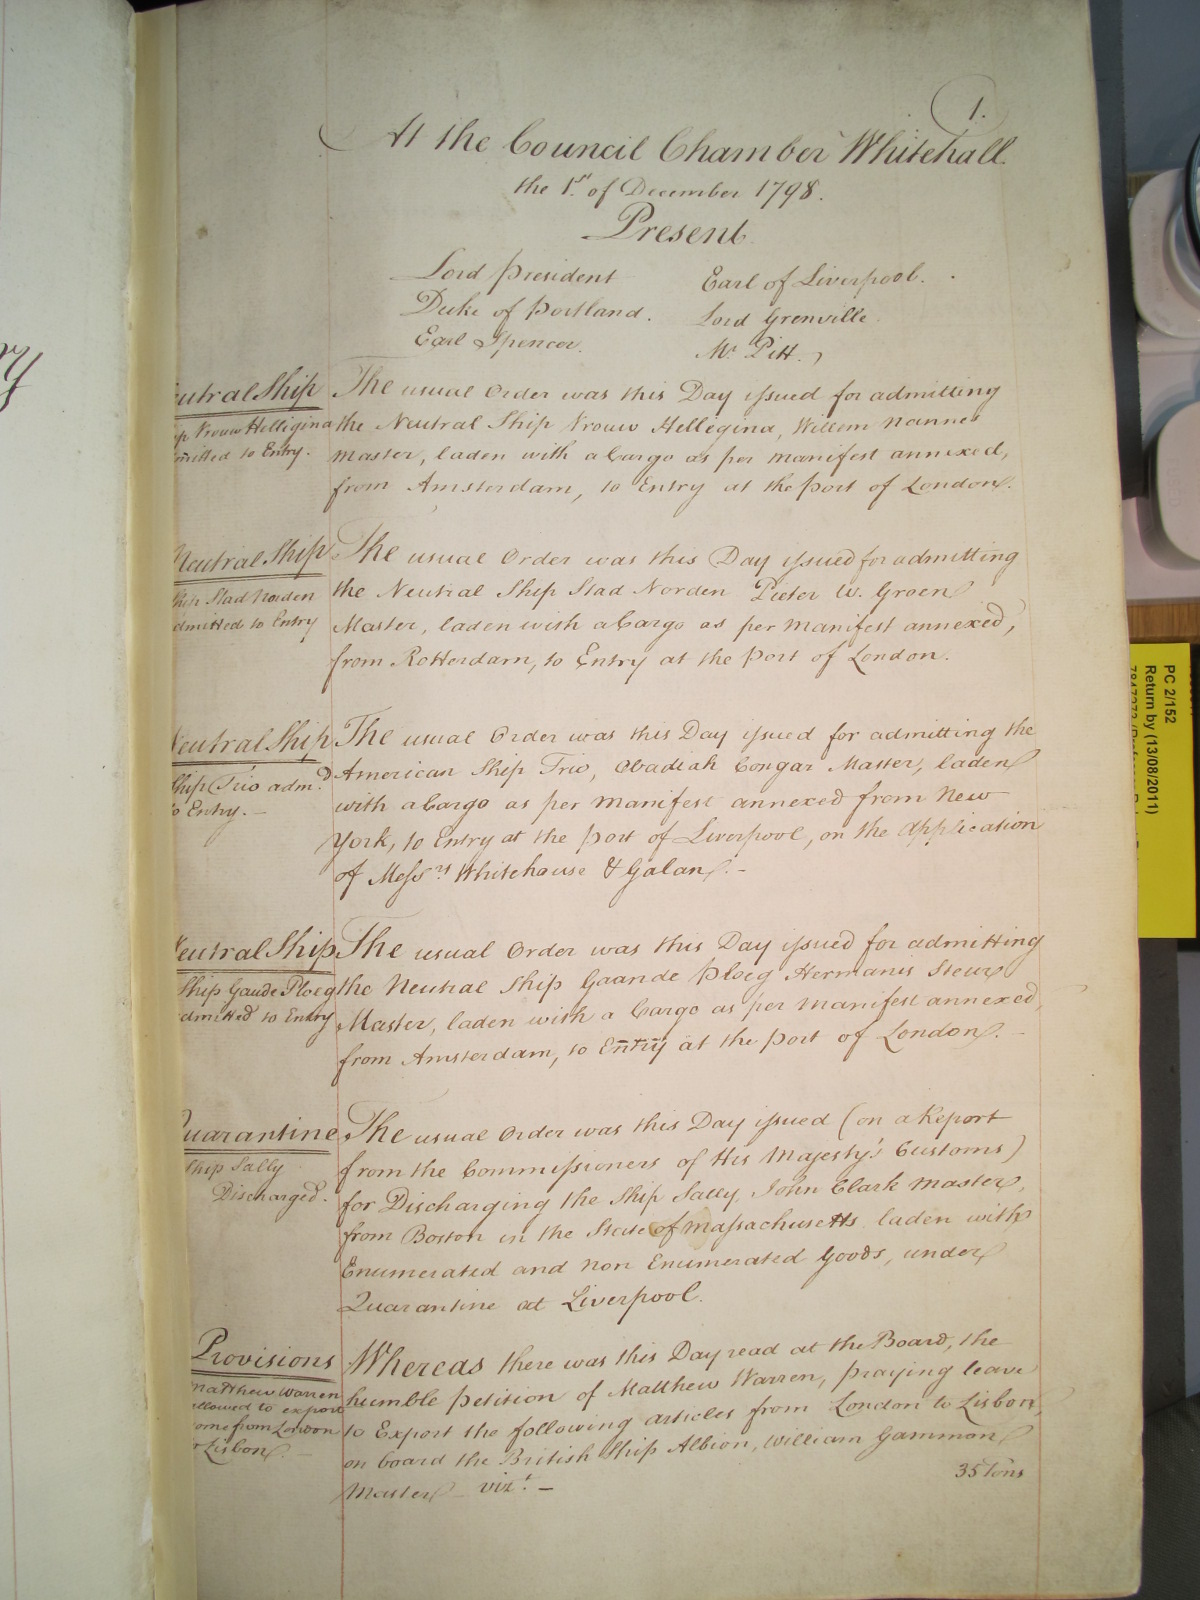 1.
At the Council Chamber Whitehall.
the 1st of December 1798.
Present
Lord President
Earl of Liverpool.
Duke of Portland.
Lord Grenville
Earl Spencer.
Mr Pitt.
eutral Ship
ip Vrouw Helligina
mitted to Entry.
The usual Order was this Day issued for admitting
the Neutral Ship Vrouw Helligina, Willem Nannes
Master, laden with a Cargo as per Manifest annexed,
from Amsterdam, to Entry at the Port of London.
Neutral Ship
Ship Stad Norden
dmitted to Entry
The usual Order was this Day issued for admitting
the Neutral Ship Stad Norden Pieter W. Groen
Master, laden with a Cargo as per Manifest annexed,
from Rotterdam, to Entry at the Port of London.
Neutral Ship
Ship Trio admd
to Entry.
The usual Order was this Day issued for admitting the
American Ship Trio, Obadiah Congar Master, laden
with a Cargo as per Manifest annexed from New
York, to Entry at the Port of Liverpool, on the Application
of Messrs Whitehouse & Galan.
Neutral Ship
Ship Gaude Ploeg
dmitted to Entry
The usual Order was this Day issued for admitting
the Neutral Ship Gaande Ploeg Hermanis
Master, laden with a Cargo as per Manifest annexed,
from Amsterdam, to Entry at the Port of London.
Quarantine
Ship Sally
Discharged.
The usual Order was this Day issued (on a Report
from the Commissioners of His Majesty's Customs)
for Discharging the Ship Sally, John Clark Master,
from Boston in the State of Massachusetts laden with
Enumerated and non Enumerated Goods, under
Quarantine at Liverpool.
Provisions
Matthew Warren
allowed to export
ome from London
to Lisbon
Whereas there was this Day read at the Board, the
humble Petition of Matthew Warren, praying leave
to Export the following articles from London to Lisbon,
on board the British Ship Albion, William Gammon
Master – vizt. –
35 tons
PC 2/152
Return by (13/08/2011)